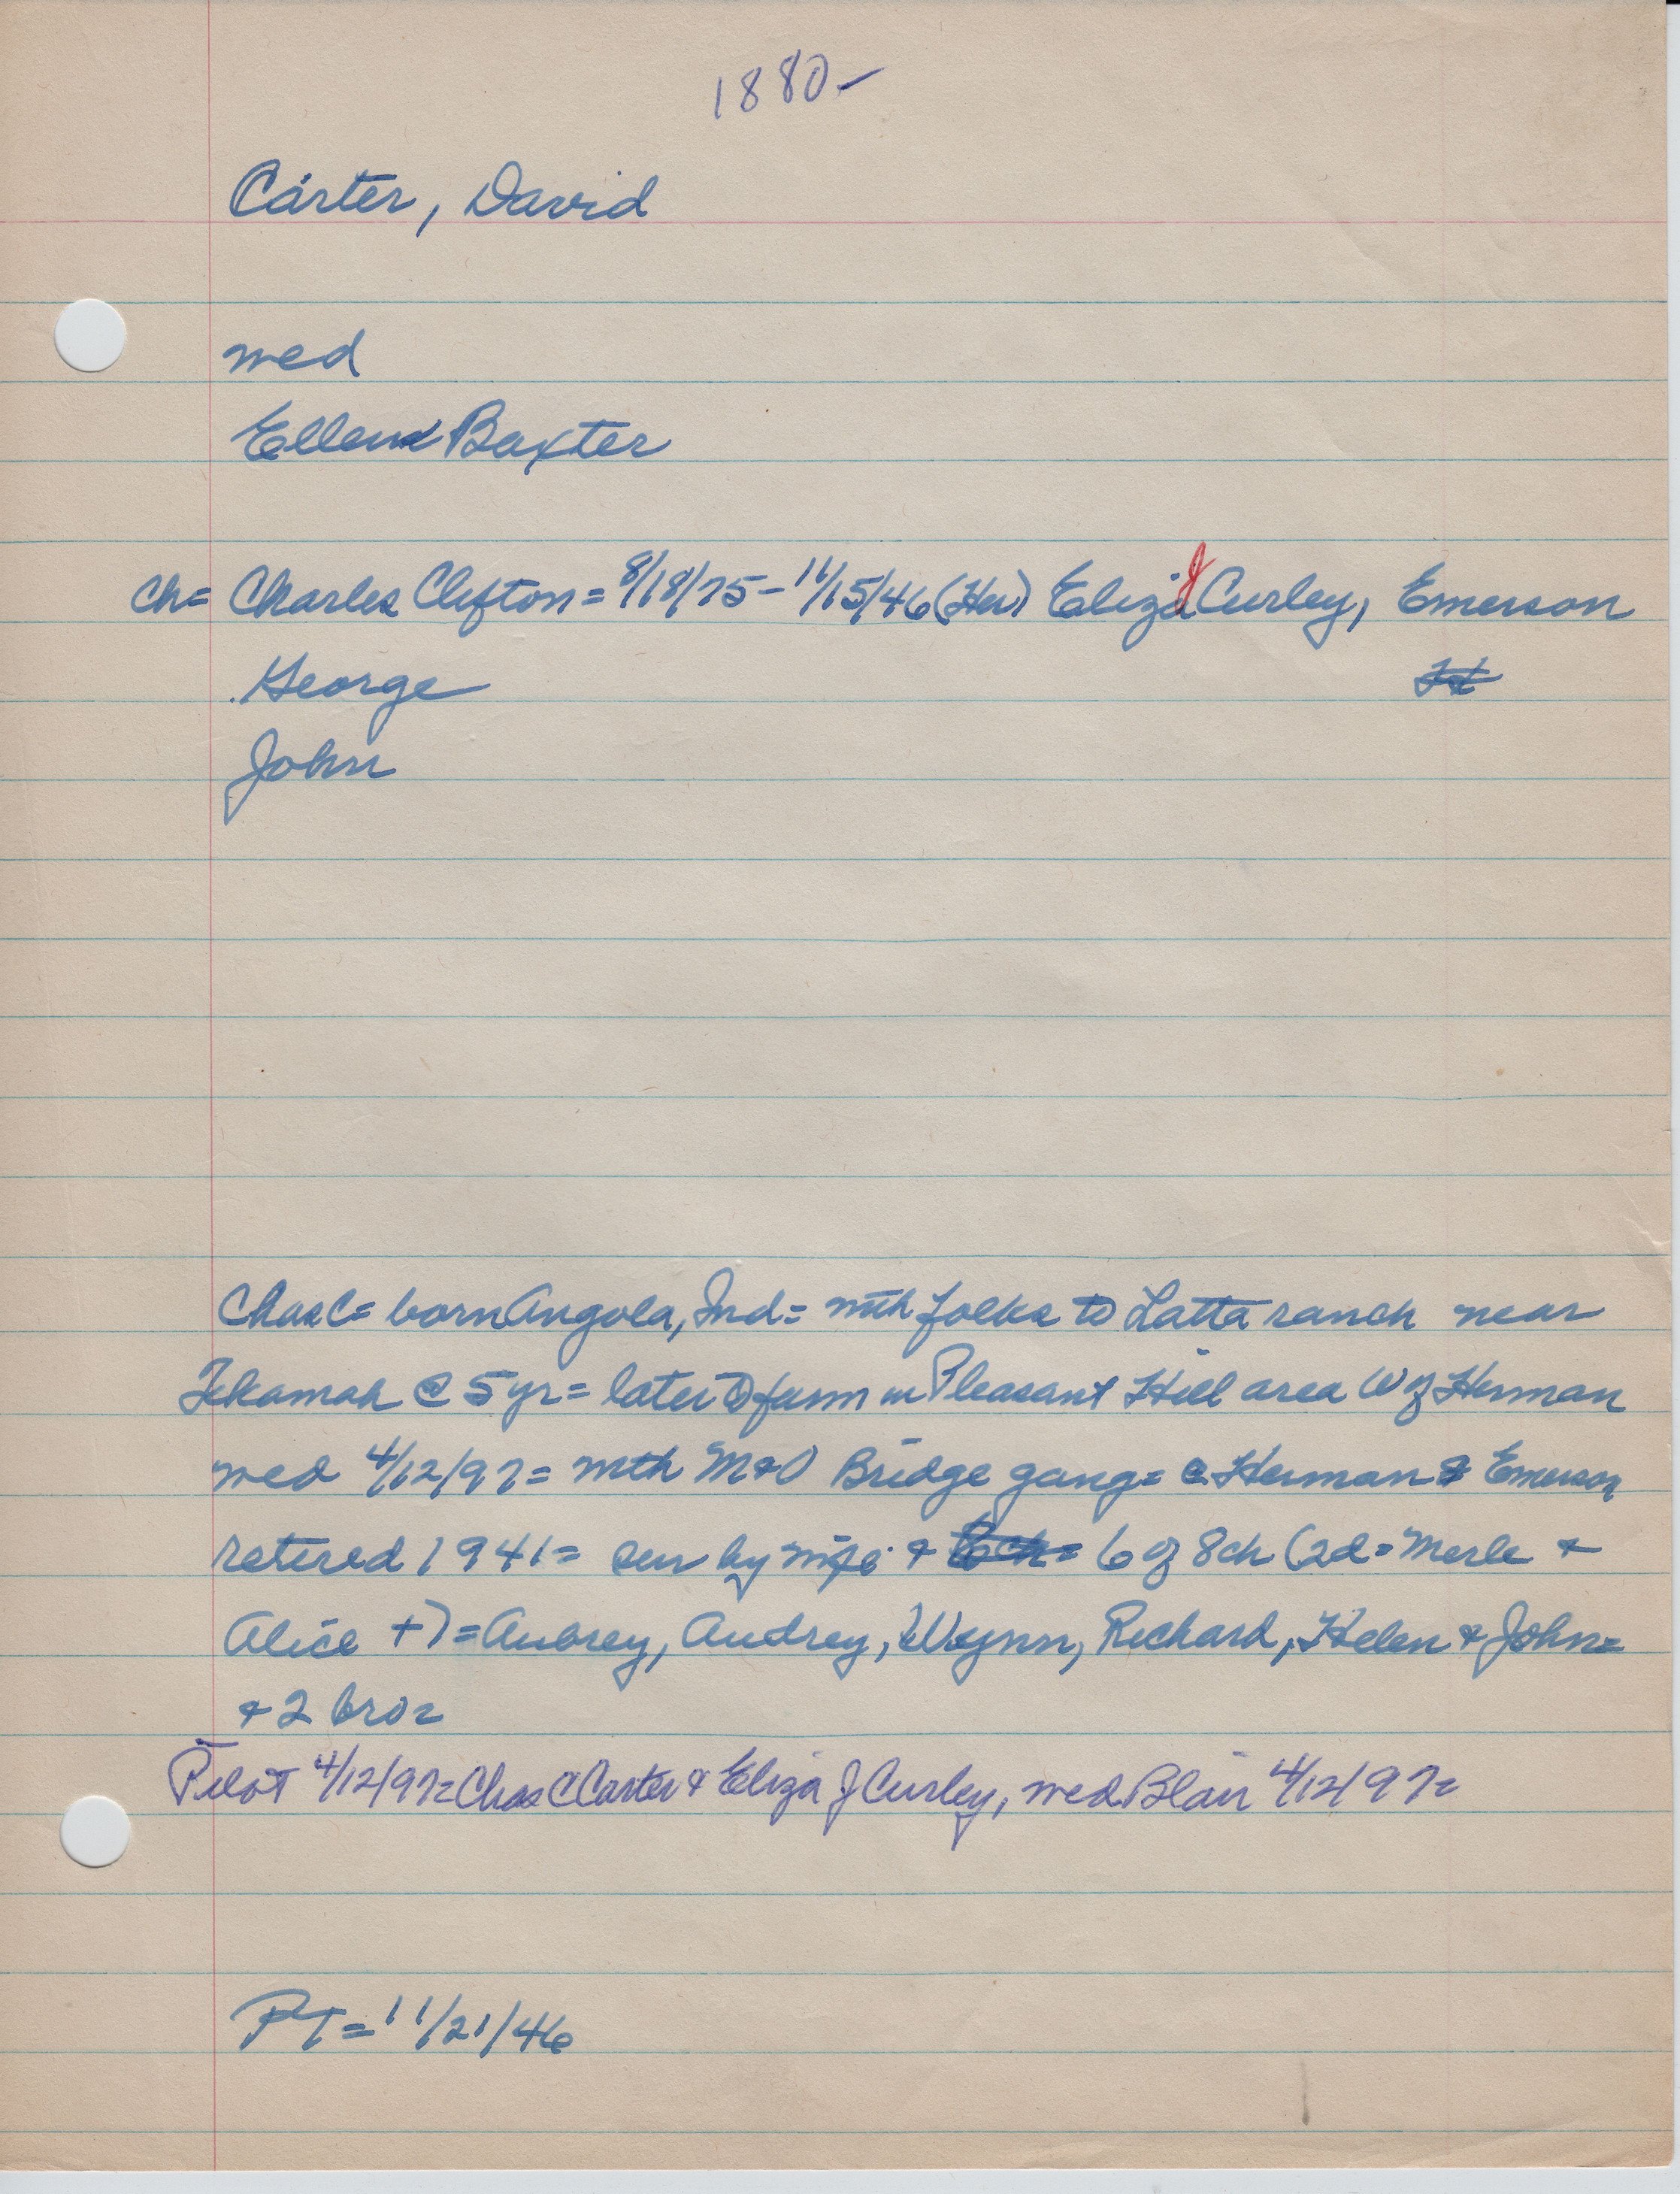 1880-
Carter, David
wed
Ellen Baxter
Ch= Charles Clifton = 8/18/75 - 11/15/46 (Her) Eliza J Curley, Emerson
George
John
Chas C = born Angola, Ind = with folks to Latta ranch near
Tekamah @ 5 yr = later to farm in Pleasant Hill area W of Herman
wed 4/12/97 = with M&O Bridge gang = @ Herman & Emerson
retired 1941 = sur by wife & 6 of 8 ch (2d = Merle &
Alice +) = Aubrey, Audrey, Wynn, Richard, Helen & John =
& 2 bro =
Pilot 4/12/97 = Chas C Carter & Eliza J Curley, wed Blair 4/12/97 =
PT = 11/21/46